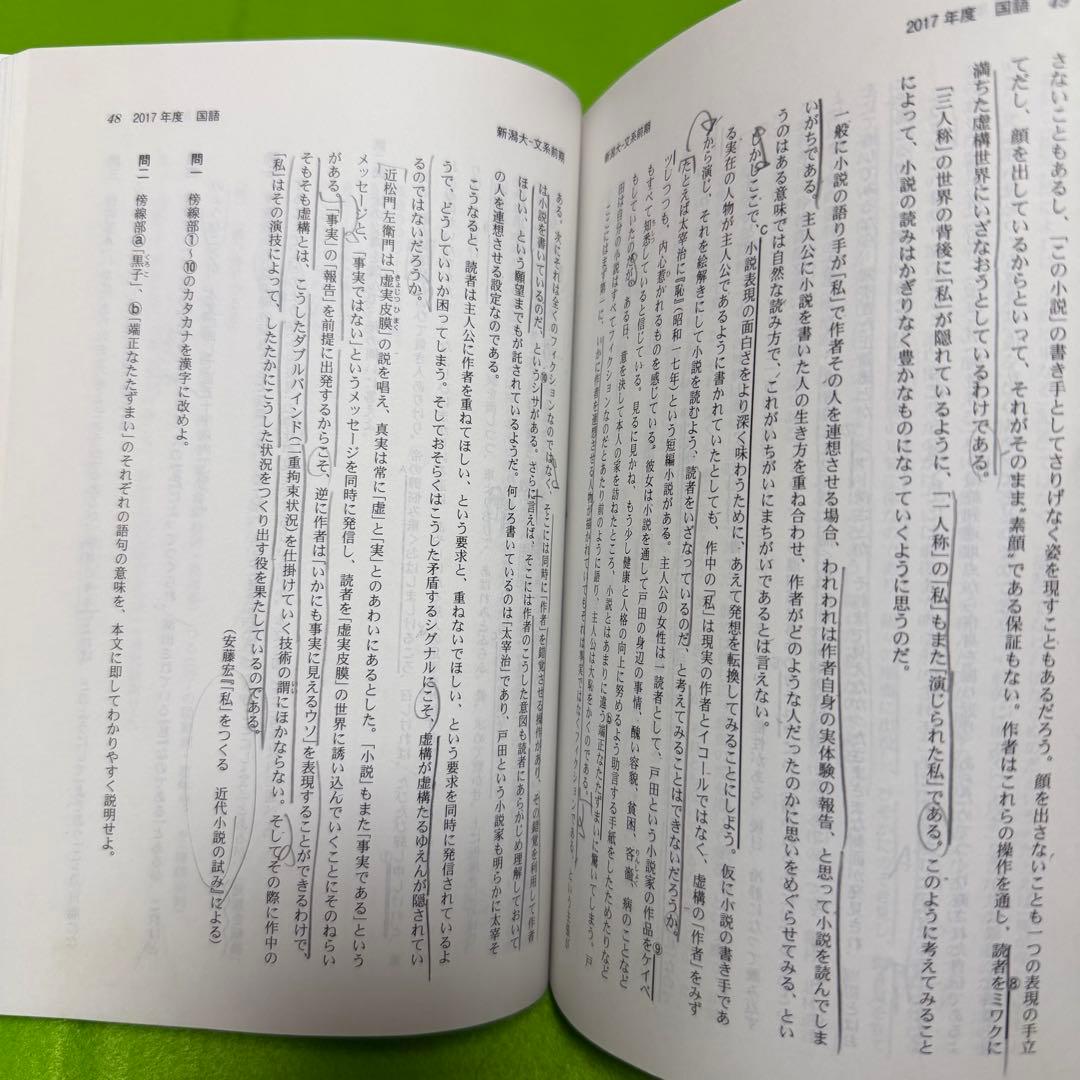 2017年度 国語 49
さないこともあるし、「この小説」の書き手としてさりげなく姿を現すこともあるだろう。顔を出さないことも一つの表現の手立
てだし、顔を出しているからといって、それがそのまま"素顔"である保証もない。作者はこれらの操作を通し、読者を⑧ミワクに
満ちた虚構世界にいざなおうとしているわけである。
「三人称」の世界の背後に「私」が隠れているように、「一人称」の「私」もまた「演じられた私」である。このように考えてみること
によって、小説の読みはかぎりなく豊かなものになっていくように思うのだ。
一般に小説の語り手が「私」で作者その人を連想させる場合、われわれは作者自身の実体験の報告、と思って小説を読んでしま
いがちである。主人公に小説を書いた人の生き方を重ね合わせ、作者がどのような人だったのかに思いをめぐらせてみる、とい
うのはある意味では自然な読み方で、これがいちがいにまちがいであるとは言えない。
しかしここで、C小説表現の面白さをより深く味わうために、あえて発想を転換してみることにしよう。仮に小説の書き手であ
る実在の人物が主人公であるように書かれていたとしても、作中の「私」は現実の作者とイコールではなく、虚構の「作者」をみず
から演じ、それを絵解きにして小説を読むよう、読者をいざなっているのだ、と考えてみることはできないだろうか。
たとえば太宰治に『恥』(昭和一七年)という短編小説がある。主人公の女性は一読者として、戸田という小説家の作品を⑨ケイベ
ツしつつも、内心惹かれるものを感じている。彼女は小説を通して戸田の身辺の事情、醜い容貌、貧困、吝嗇、病のことなど
もすべて知悉していると信じている。見るに見かね、もう少し健康と人格の向上に努めるよう助言する手紙をしたためたりなど
もしていたのだが、ある日、意を決して本人の家を訪ねたところ、小説とはあまりに違うⓑ端正なたたずまいに驚いてしまう。戸
田は自分の小説はすべてフィクションなのだとあたり前のように語り、主人公は大恥をかくのである。
ここにはまず第一に、いかに作者を連想させる人物が描かれていてもそれは事実ではなくフィクションである、という主張が
新潟大-文系前期
48 2017年度 国語
新潟大-文系前期
ある。次にそれは全くのフィクションなのではなく、そこには同時に「作者」を錯覚させる操作があり、その錯覚を利用して、作者
は小説を書いているのだ、という⑩シサがある。さらに言えば、そこには作者のこうした意図も読者にあらかじめ理解しておいて
ほしい、という願望までもが託されているようだ。何しろ書いているのは「太宰治」であり、戸田という小説家も明らかに太宰そ
の人を連想させる設定なのである。
こうなると、読者は主人公に作者を重ねてほしい、という要求と、重ねないでほしい、という要求を同時に発信されているよ
うで、どうしていいか困ってしまう。そしておそらくはこうした矛盾するシグナルにこそ、虚構が虚構たるゆえんが隠されてい
るのではないだろうか。
近松門左衛門は「虚実皮膜」の説を唱え、真実は常に「虚」と「実」とのあわいにあるとした。「小説」もまた「事実である」という
メッセージと、「事実ではない」というメッセージを同時に発信し、読者を「虚実皮膜」の世界に誘い込んでいくことにそのねらい
がある。「事実」の「報告」を前提に出発するからこそ、逆に作者は「いかにも事実に見えるウソ」を表現することができるわけで、
そもそも虚構とは、こうしたダブルバインド(二重拘束状況)を仕掛けていく技術の謂にほかならない。そしてその際に作中の
「私」はその演技によって、したたかにこうした状況をつくり出す役を果たしているのである。
(安藤宏『「私」をつくる 近代小説の試み』による)
問一 傍線部①~⑩のカタカナを漢字に改めよ。
問二 傍線部ⓐ「黒子」、ⓑ「端正なたたずまい」のそれぞれの語句の意味を、本文に即してわかりやすく説明せよ。